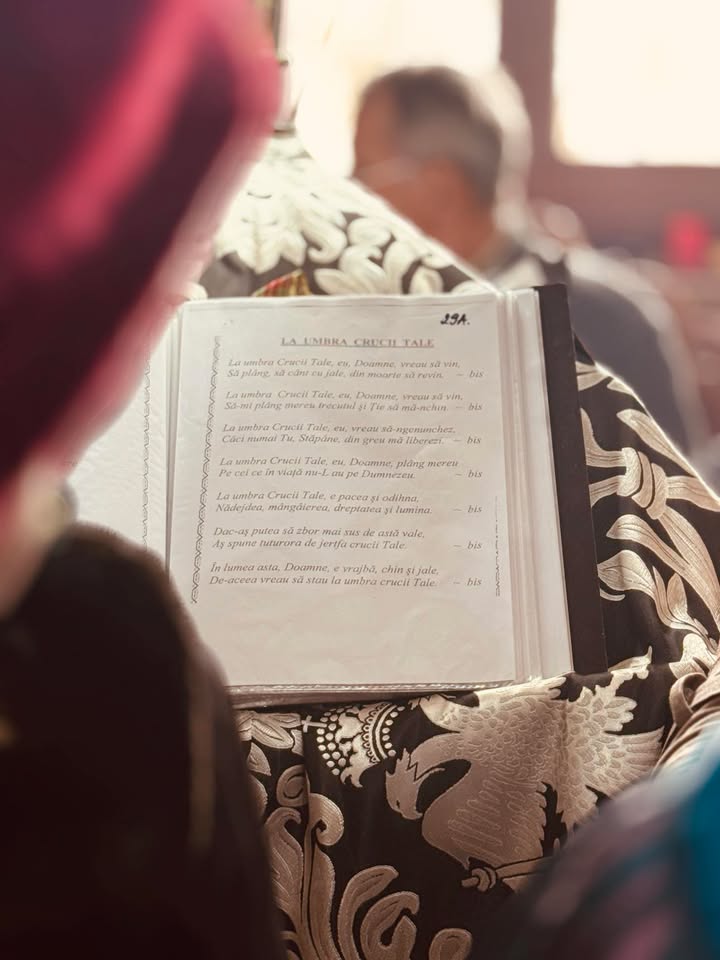 29A.
LA UMBRA CRUCII TALE
La umbra Crucii Tale, eu, Doamne, vreau să vin,
Să plâng, să cânt cu jale, din moarte să revin. – bis
La umbra Crucii Tale, eu, Doamne, vreau să vin,
Să-mi plâng mereu trecutul și Ție să mă-nchin. – bis
La umbra Crucii Tale, eu, vreau să-ngenunchez,
Căci numai Tu, Stăpâne, din greu mă liberezi. – bis
La umbra Crucii Tale, eu, Doamne, plâng mereu
Pe cei ce în viață nu-L au pe Dumnezeu. – bis
La umbra Crucii Tale, e pacea și odihna,
Nădejdea, mângâierea, dreptatea și lumina. – bis
Dac-aș putea să zbor mai sus de astă vale,
Aș spune tuturora de jertfa crucii Tale. – bis
În lumea asta, Doamne, e vrajbă, chin și jale,
De-aceea vreau să stau la umbra crucii Tale. – bis